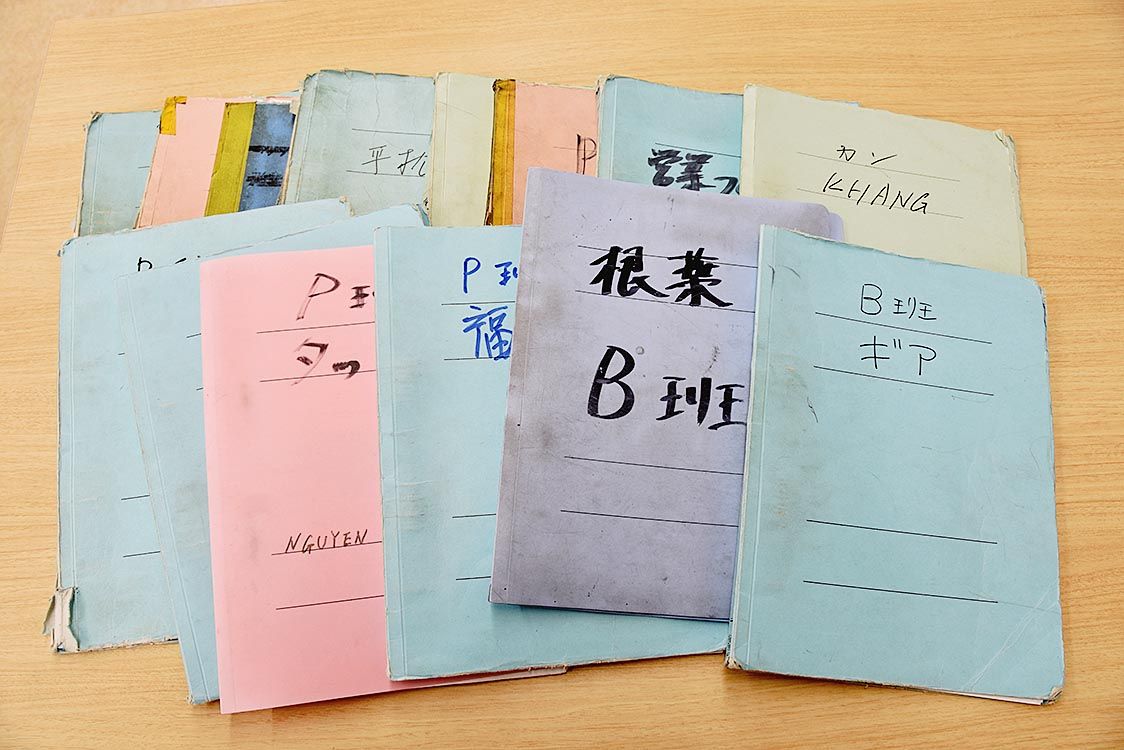 平
P
営業
カン
KHANG
P
P班
タッ
NGUYEN
P班
福
根葉
B班
B班
ギア